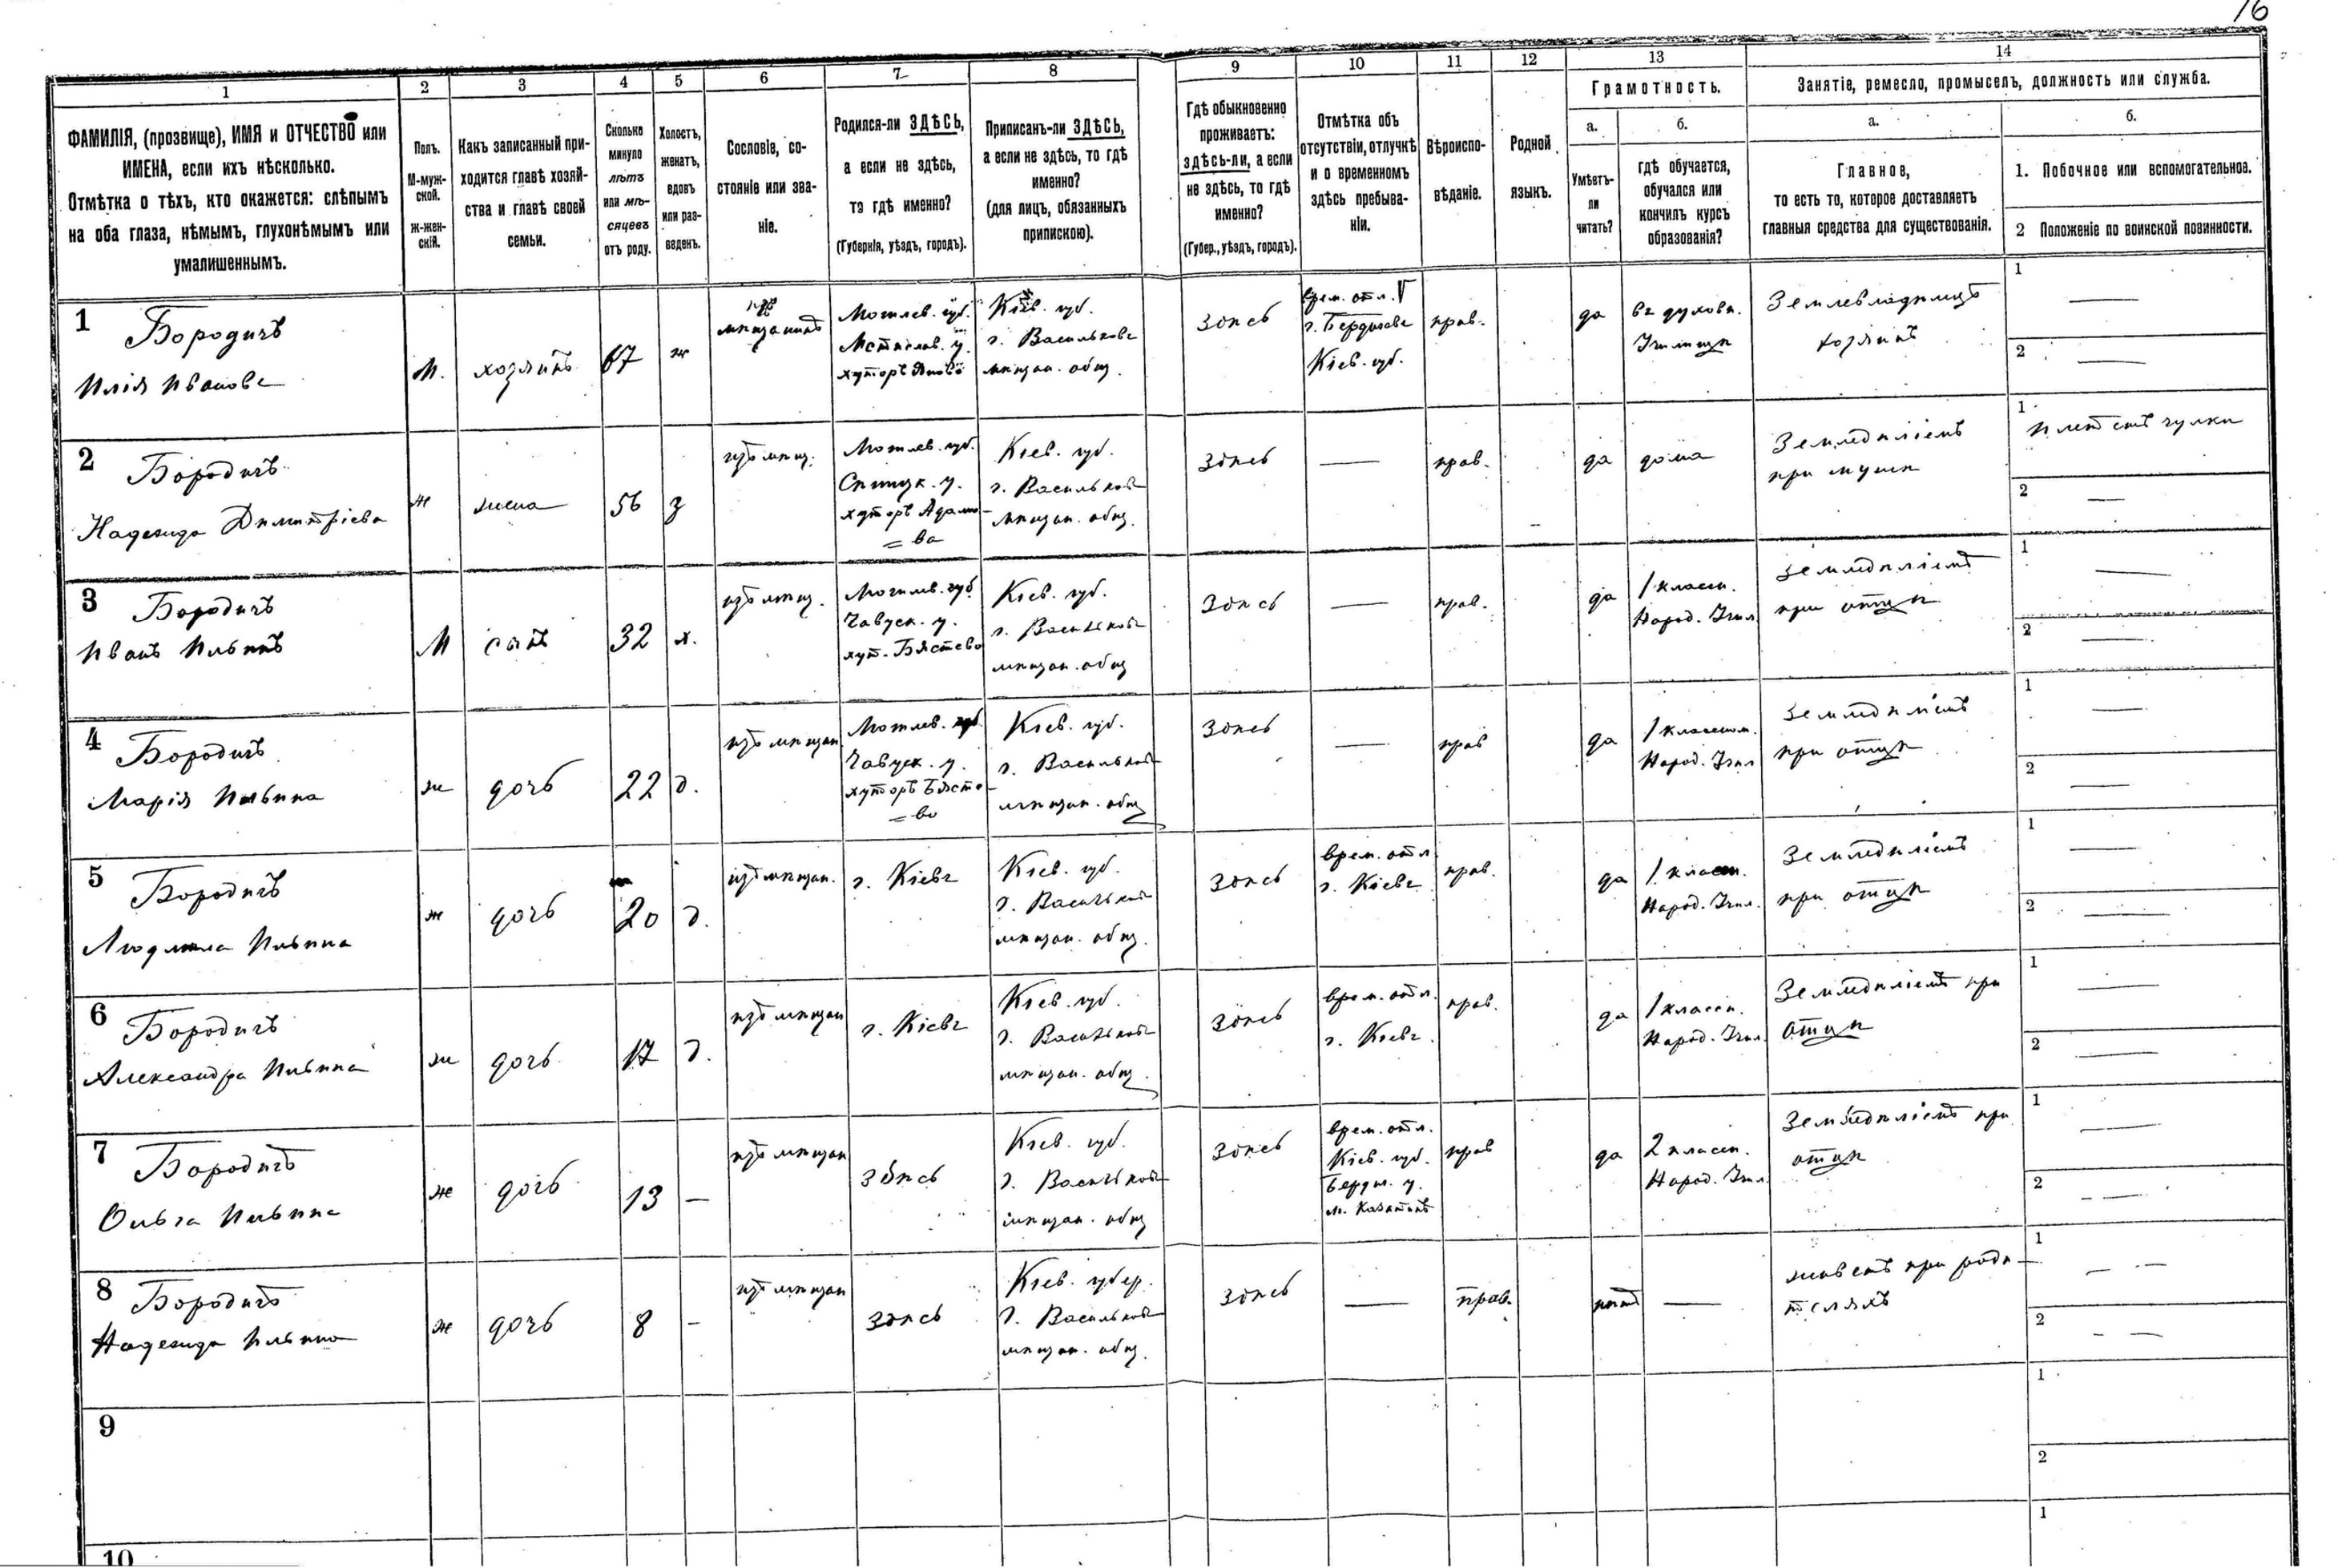 76
1
2
3
4
5
6
7
8
9
10
11
12
13
14
ФАМИЛІЯ, (прозвище), ИМЯ и ОТЧЕСТВО или
ИМЕНА, если ихъ нѣсколько.
Отмѣтка о тѣхъ, кто окажется: слѣпымъ
на оба глаза, нѣмымъ, глухонѣмымъ или
умалишеннымъ.
Полъ.
М-муж-
ской.
ж-жен-
скій.
Какъ записанный при-
ходится главѣ хозяй-
ства и главѣ своей
семьи.
Сколько
минуло
лѣтъ
или мѣ-
сяцевъ
отъ роду.
Холостъ,
женатъ,
вдовъ
или раз-
веденъ.
Сословіе, со-
стояніе или зва-
ніе.
Родился-ли ЗДѢСЬ,
а если не здѣсь,
то гдѣ именно?
(Губернія, уѣздъ, городъ).
Приписанъ-ли ЗДѢСЬ,
а если не здѣсь, то гдѣ
именно?
(для лицъ, обязанныхъ
припискою).
Гдѣ обыкновенно
проживаетъ:
здѣсь-ли, а если
не здѣсь, то гдѣ
именно?
(Губер., уѣздъ, городъ).
Отмѣтка объ
отсутствіи, отлучкѣ
и о временномъ
здѣсь пребыва-
ніи.
Вѣроиспо-
вѣданіе.
Родной
языкъ.
Грамотность.
а.
Умѣетъ-
ли
читать?
б.
гдѣ обучается,
обучался или
кончилъ курсъ
образованія?
Занятіе, ремесло, промыселъ, должность или служба.
а.
Главное,
то есть то, которое доставляетъ
главныя средства для существованія.
б.
1. Побочное или вспомогательное.
2 Положеніе по воинской повинности.
1
Бородичъ
Илія Иванова
М.
хозяинъ
67
ж
изъ
мѣщанинъ
Могилев. губ.
Мстислав. у.
хуторъ
Кіев. губ.
г. Васильковъ
мѣщан. общ.
Здѣсь
врем. отл.
г. Бердичевъ
Кіев. губ.
прав.
да
въ духовн.
Училищѣ
Землевладѣлецъ
хозяинъ
1 —
2 —
2
Бородичъ
Надежда Димитріева
ж
жена
56
з
изъ мѣщ.
Могилев. губ.
уѣ. у.
хуторъ Адамо-
= ва
Кіев. губ.
г. Васильков
мѣщан. общ.
Здѣсь
—
прав.
да
дома
Земледѣліемъ
при мужѣ
1 плететъ чулки
2 —
3
Бородичъ
Иванъ Ильинъ
М
сынъ
32
х.
изъ мѣщ.
Могилев. губ
Чавуск. у.
хут. Бястево
Кіев. губ.
г. Васильков
мѣщан. общ
Здѣсь
—
прав.
да
1 классн.
Народ. Учил
Земледѣліемъ
при отцѣ
1 —
2 —
4
Бородичъ
Марія Ильина
ж
дочь
22
д.
изъ мѣщан.
Могилев. губ.
Чавуск. у.
хуторъ Бясте-
= во
Кіев. губ.
г. Васильков
мѣщан. общ
Здѣсь
—
прав
да
1 классн.
Народ. Учил
Земледѣліемъ
при отцѣ
1 —
2 —
5
Бородичъ
Людмила Ильина
ж
дочь
20
д.
изъ мѣщан.
г. Кіевъ
Кіев. губ.
г. Васильков
мѣщан. общ.
Здѣсь
врем. отл
г. Кіевъ
прав.
да
1 классн.
Народ. Учил.
Земледѣліемъ
при отцѣ
1 —
2 —
6
Бородичъ
Александра Ильина
ж
дочь
17
д.
изъ мѣщан
г. Кіевъ
Кіев. губ.
г. Васильков
мѣщан. общ.
Здѣсь
врем. отл.
г. Кіевъ.
прав.
да
1 классн.
Народ. Учил.
Земледѣліемъ при
отцѣ
1 —
2 —
7
Бородичъ
Ольга Ильина
ж
дочь
13
—
изъ мѣщан
Здѣсь
Кіев. губ.
г. Васильков
мѣщан. общ
Здѣсь
врем. отл.
Кіев. губ.
Бердич. у.
м. Казатинъ
прав
да
2 классн.
Народ. Учил.
Земледѣліемъ при
отцѣ
1 —
2 —
8
Бородичъ
Надежда Ильина
ж
дочь
8
-
изъ мѣщан
Здѣсь
Кіев. губер.
г. Васильков
мѣщан. общ.
Здѣсь
—
прав.
нѣтъ
—
живетъ при роди-
теляхъ
1 —
2 —
9
1
2
10
1